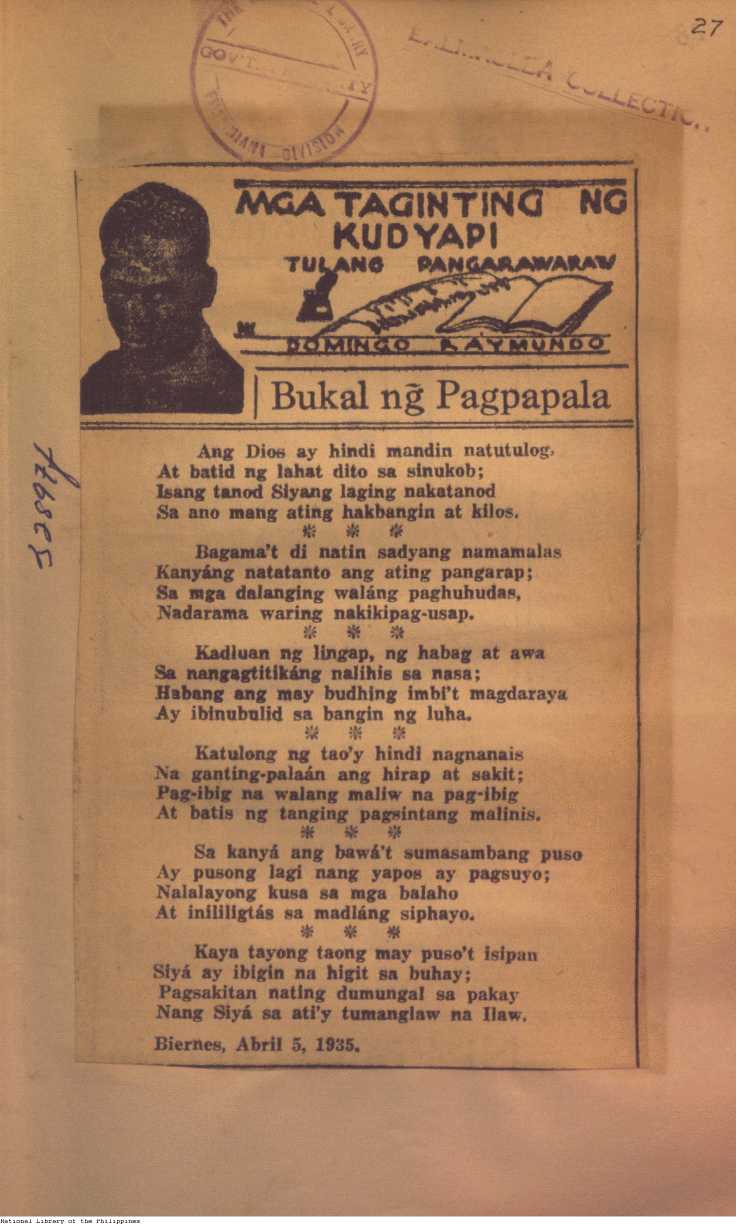 27
GOV'T
DIVISION
COLLECTIO
MGA TAGINTING NG
KUDYAPI
TULANG PANGARAWARAW
NI
DOMINGO RAYMUNDO
Bukal ng̃ Pagpapala
Ang Dios ay hindi mandin natutulog,
At batid ng lahat dito sa sinukob;
Isang tanod Siyang laging nakatanod
Sa ano mang ating hakbangin at kilos.
* * *
Bagama't di natin sadyang namamalas
Kanyáng natatanto ang ating pangarap;
Sa mga dalanging waláng paghuhudas,
Nadarama waring nakikipag-usap.
* * *
Kadluan ng lingap, ng habag at awa
Sa nangagtitikáng nalihis sa nasa;
Habang ang may budhing imbi't magdaraya
Ay ibinubulid sa bangin ng luha.
* * *
Katulong ng tao'y hindi nagnanais
Na ganting-palaán ang hirap at sakit;
Pag-ibig na walang maliw na pag-ibig
At batis ng tanging pagsintang malinis.
* * *
Sa kanyá ang bawá't sumasambang puso
Ay pusong lagi nang yapos ay pagsuyo;
Nalalayong kusa sa mga balaho
At inililigtás sa madláng siphayo.
* * *
Kaya tayong taong may puso't isipan
Siyá ay ibigin na higit sa buhay;
Pagsakitan nating dumungal sa pakay
Nang Siyá sa ati'y tumanglaw na Ilaw.
Biernes, Abril 5, 1935.
National Library of the Philippines